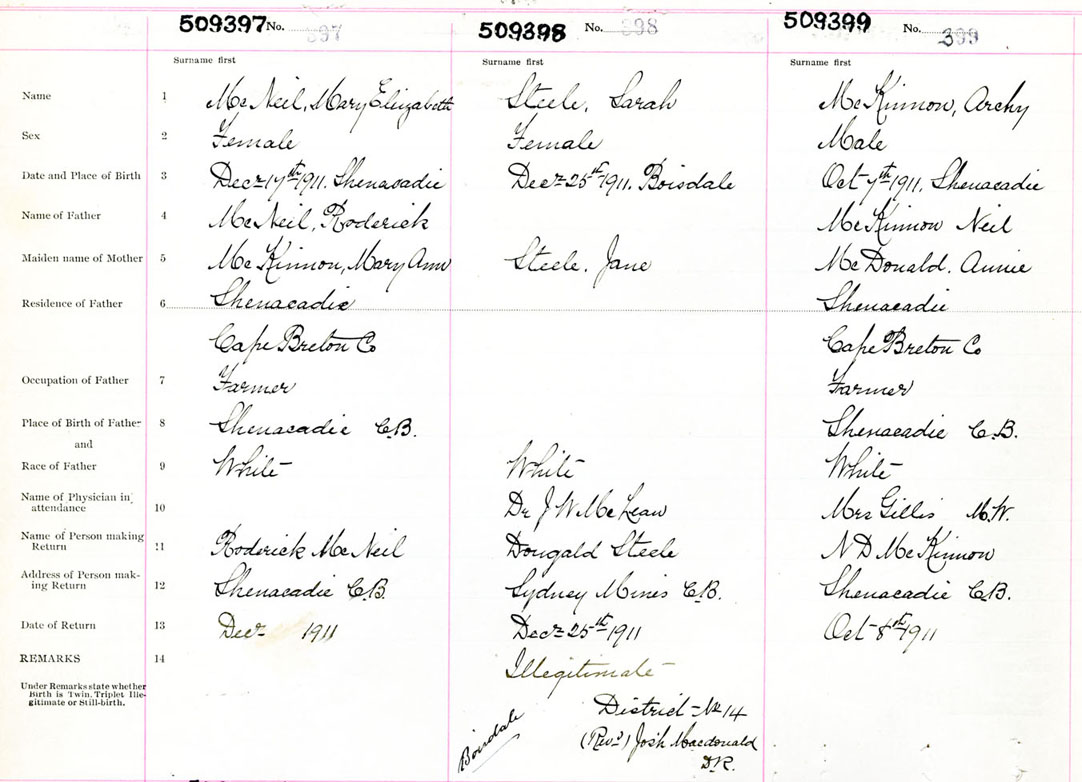 509397 No. 397 509398 No. 398 509399 No. 399
Surname first Surname first Surname first
Name 1 McNeil, Mary Elizabeth Steele, Sarah McKinnon, Archy
Sex 2 Female Female Male
Date and Place of Birth 3 Decr 17th 1911. Shenacadie Decr 25th 1911. Boisdale Oct 7th 1911. Shenacadie
Name of Father 4 McNeil, Roderick McKinnon Neil
Maiden name of Mother 5 McKinnon, Mary Ann Steele, Jane McDonald. Annie
Residence of Father 6 Shenacadie Shenacadie
Cape Breton Co Cape Breton Co
Occupation of Father 7 Farmer Farmer
Place of Birth of Father 8 Shenacadie C.B. Shenacadie C.B.
and
Race of Father 9 White White White
Name of Physician in
attendance 10 Dr J W McLean Mrs Gillis M.W.
Name of Person making
Return 11 Roderick McNeil Dougald Steele N D McKinnon
Address of Person mak-
ing Return 12 Shenacadie C.B. Sydney Mines C.B. Shenacadie C.B.
Date of Return 13 Decr 1911 Decr 25th 1911 Oct 8th 1911
REMARKS 14 Illegitimate
Under Remarks state whether
Birth is Twin, Triplet Ille-
gitimate or Still-birth.
Boisdale
District No 14
(Revd) Josh Macdonald
D.R.